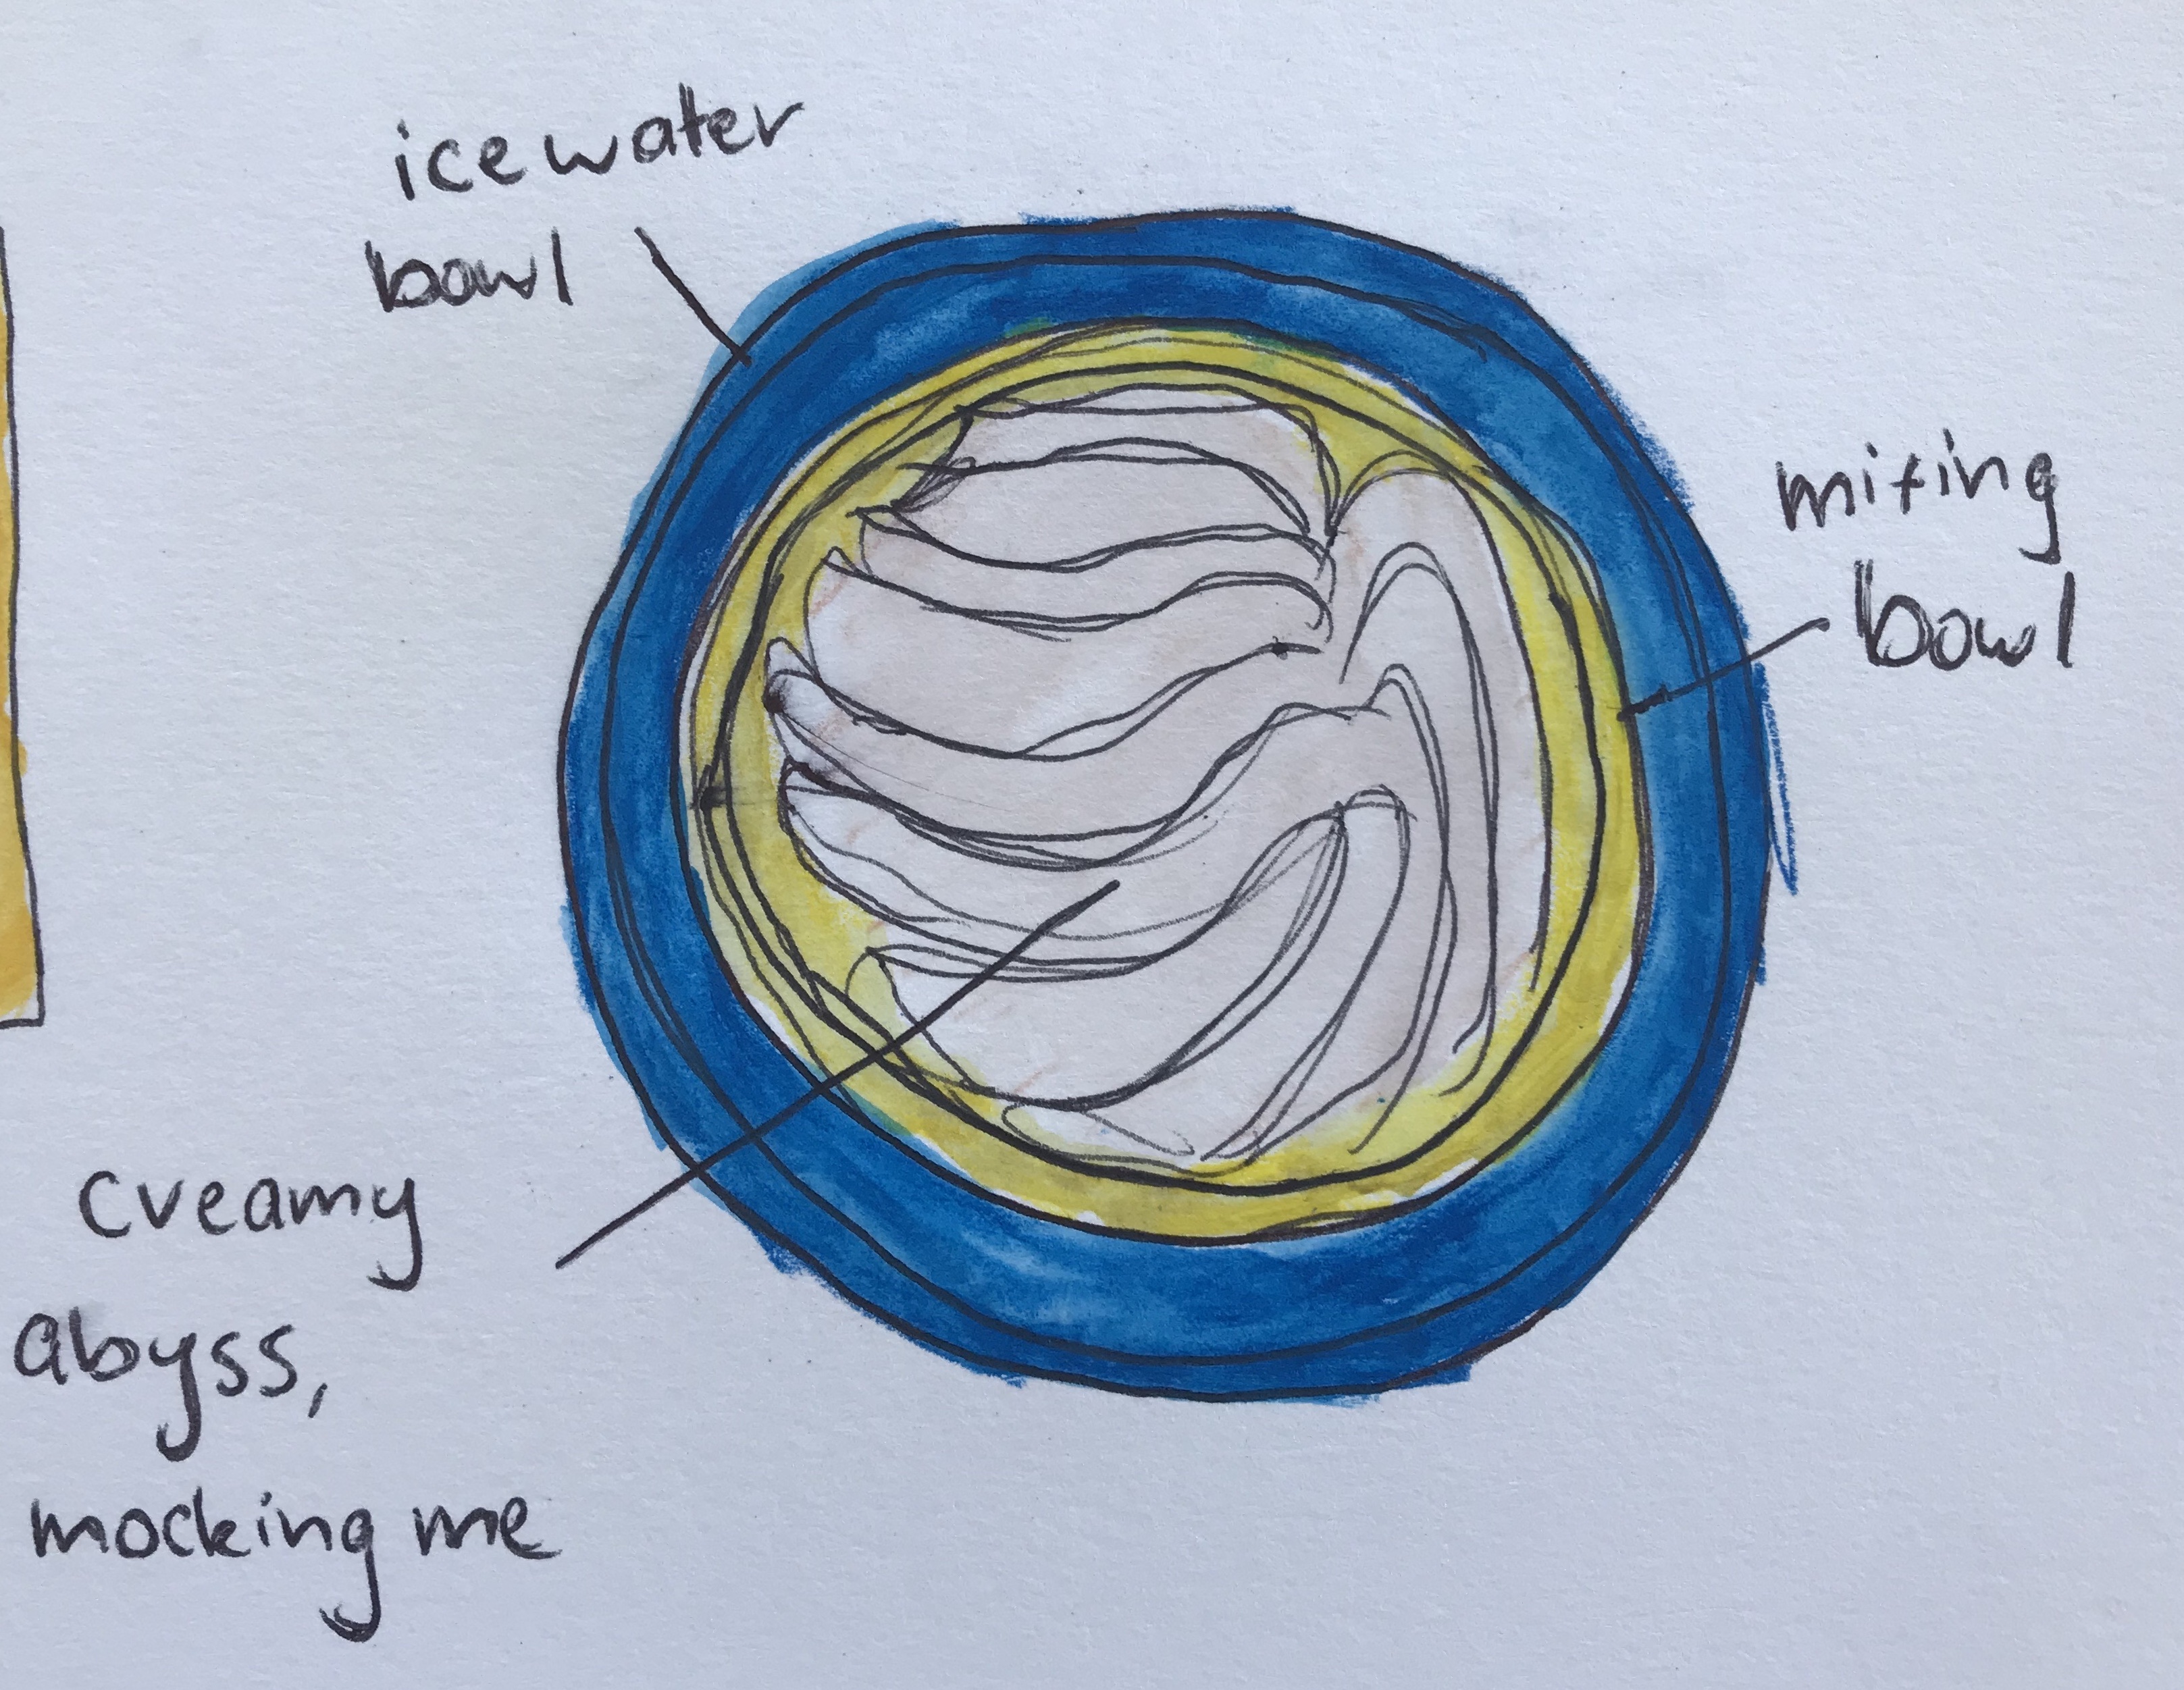 icewater
bowl
mixing
bowl
creamy
abyss,
mocking me